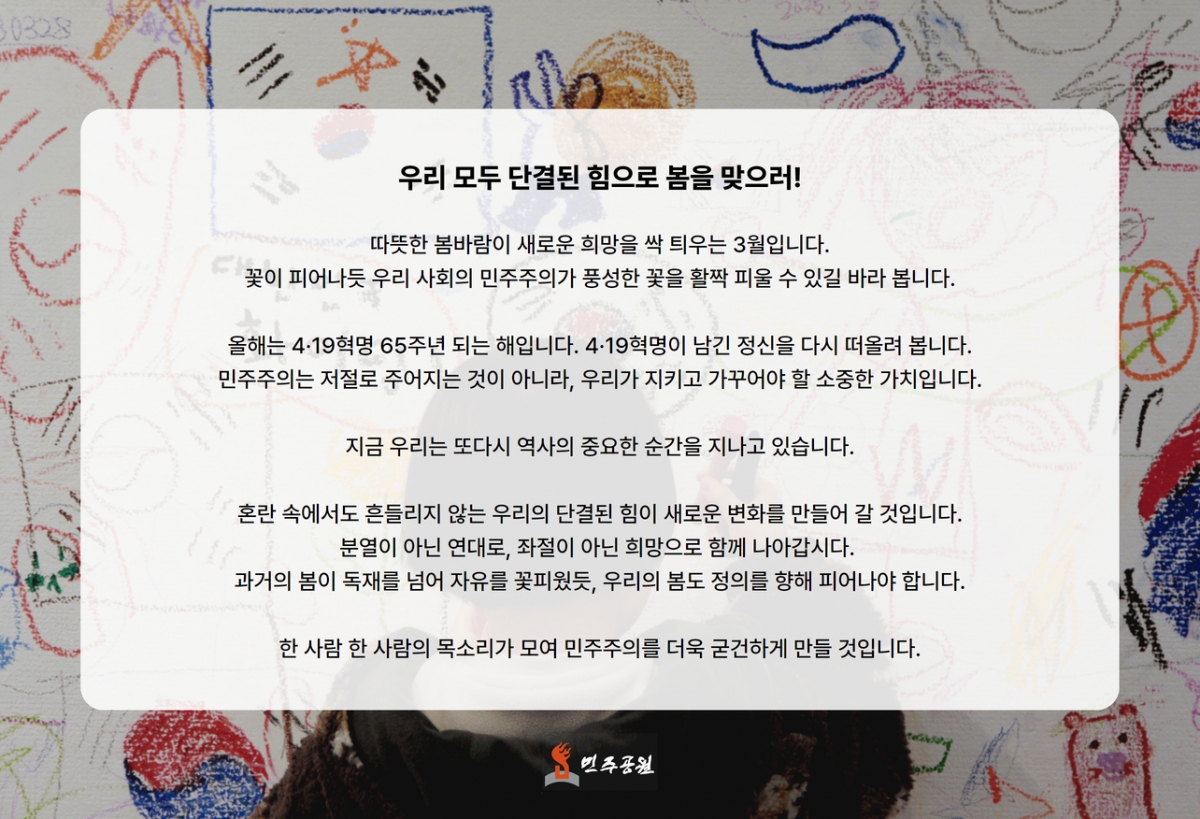 30328
2025.3.3
우리 모두 단결된 힘으로 봄을 맞으러!
따뜻한 봄바람이 새로운 희망을 싹 틔우는 3월입니다.
꽃이 피어나듯 우리 사회의 민주주의가 풍성한 꽃을 활짝 피울 수 있길 바라 봅니다.
올해는 4·19혁명 65주년 되는 해입니다. 4·19혁명이 남긴 정신을 다시 떠올려 봅니다.
민주주의는 저절로 주어지는 것이 아니라, 우리가 지키고 가꾸어야 할 소중한 가치입니다.
지금 우리는 또다시 역사의 중요한 순간을 지나고 있습니다.
혼란 속에서도 흔들리지 않는 우리의 단결된 힘이 새로운 변화를 만들어 갈 것입니다.
분열이 아닌 연대로, 좌절이 아닌 희망으로 함께 나아갑시다.
과거의 봄이 독재를 넘어 자유를 꽃피웠듯, 우리의 봄도 정의를 향해 피어나야 합니다.
한 사람 한 사람의 목소리가 모여 민주주의를 더욱 굳건하게 만들 것입니다.
민주공원